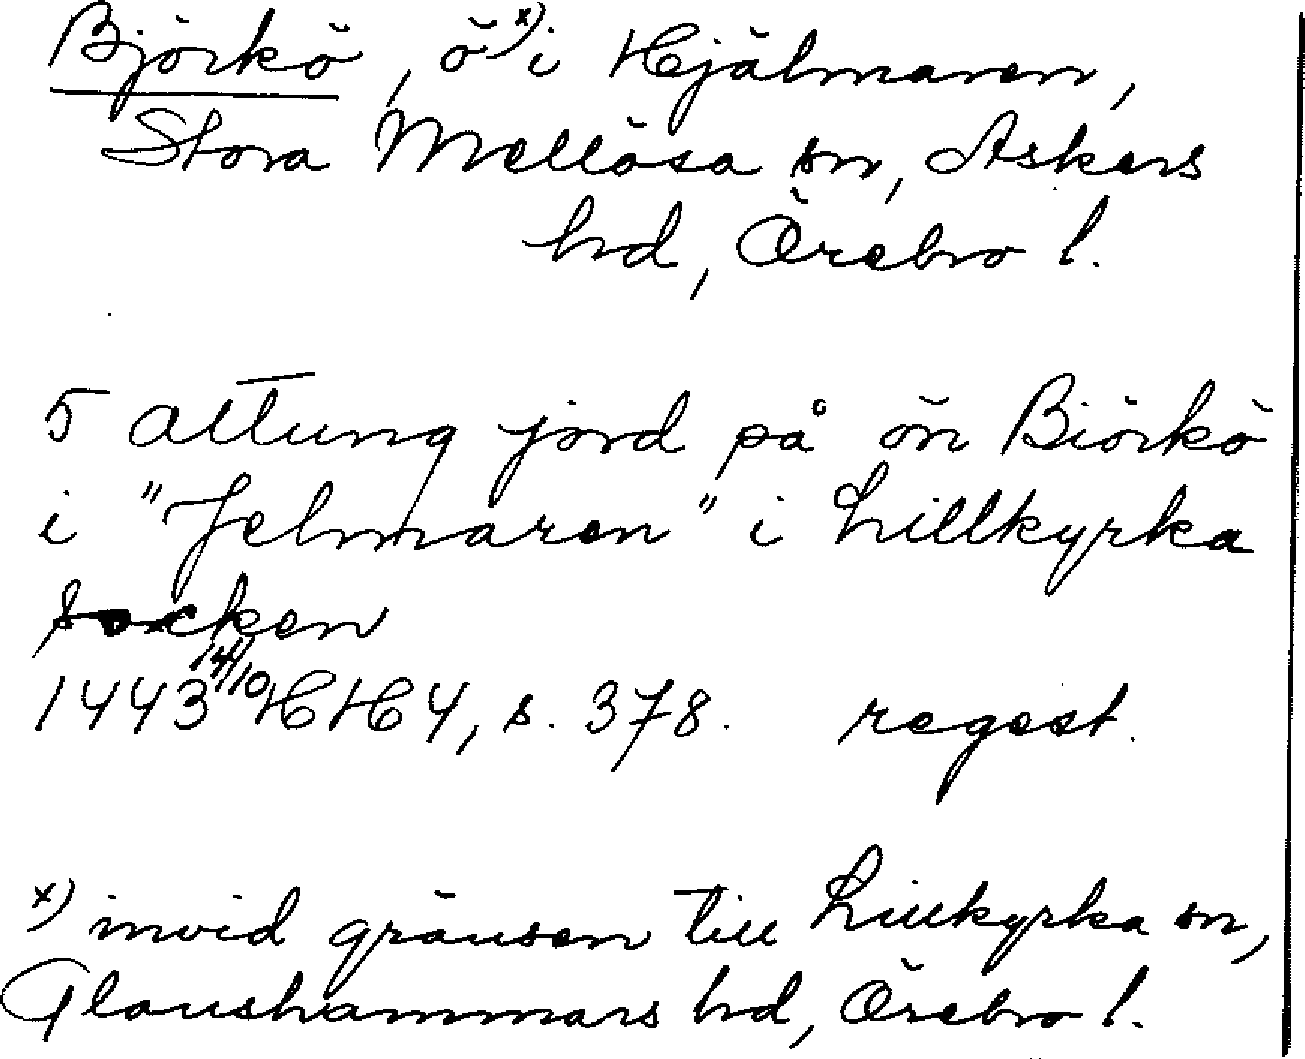 Björkö, ö x) i Hjälmaren,
Stora Mellösa sn, Askers
hd, Örebro l.
5 attung jord på ön Biörkö
i "Jelmaren" i Lillkyrka
socken
1443 14/10 HH 4, s. 378. regest.
x) invid gränsen till Lillkyrka sn,
Glanshammars hd, Örebro l.